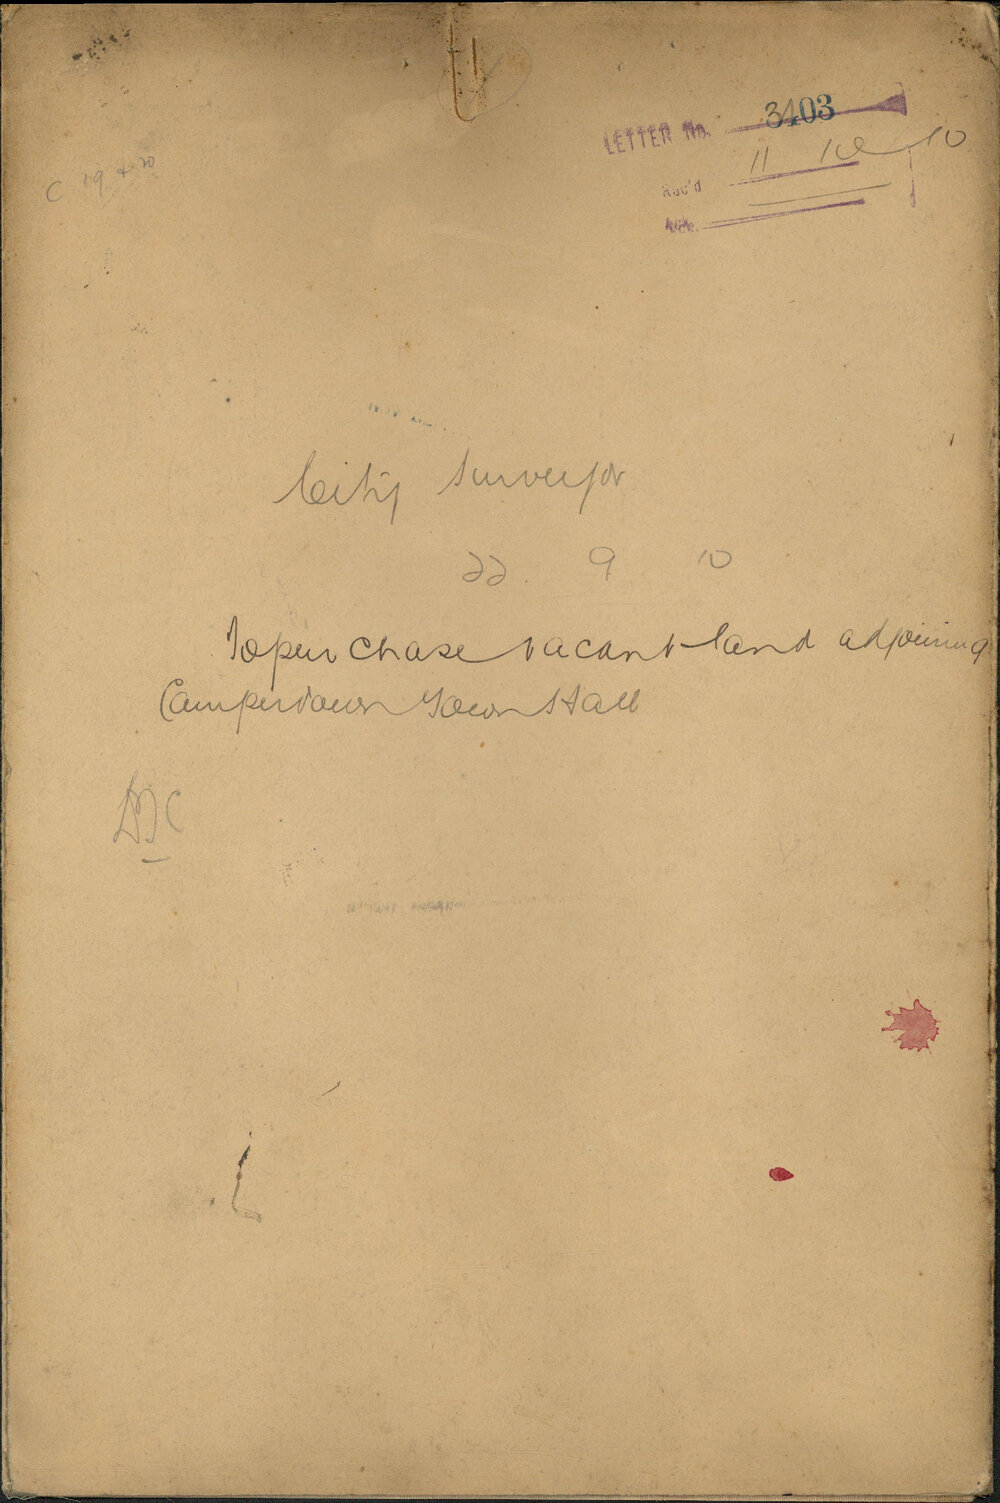 LETTER No. 3403
C 19 + 20
Rec'd 11 10 10
Ack.
City Surveyor
22. 9 10
To purchase vacant land adjoining
Camperdown Town Hall